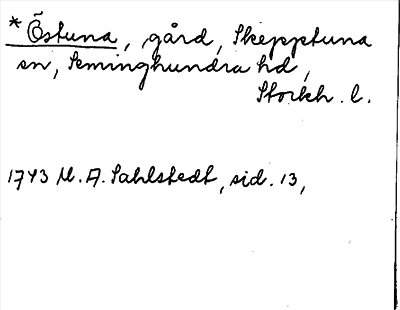 * Östuna, gård, Skepptuna
sn, Seminghundra hd,
Stockh. l.
1743 M. A. Sahlstedt, sid. 13,